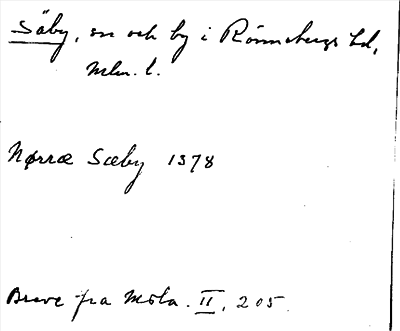 Säby, sn och by i Rönnebergs hd,
Mlm. l.
Nørræ Sæby 1378
Breve fra Mola. II, 205.